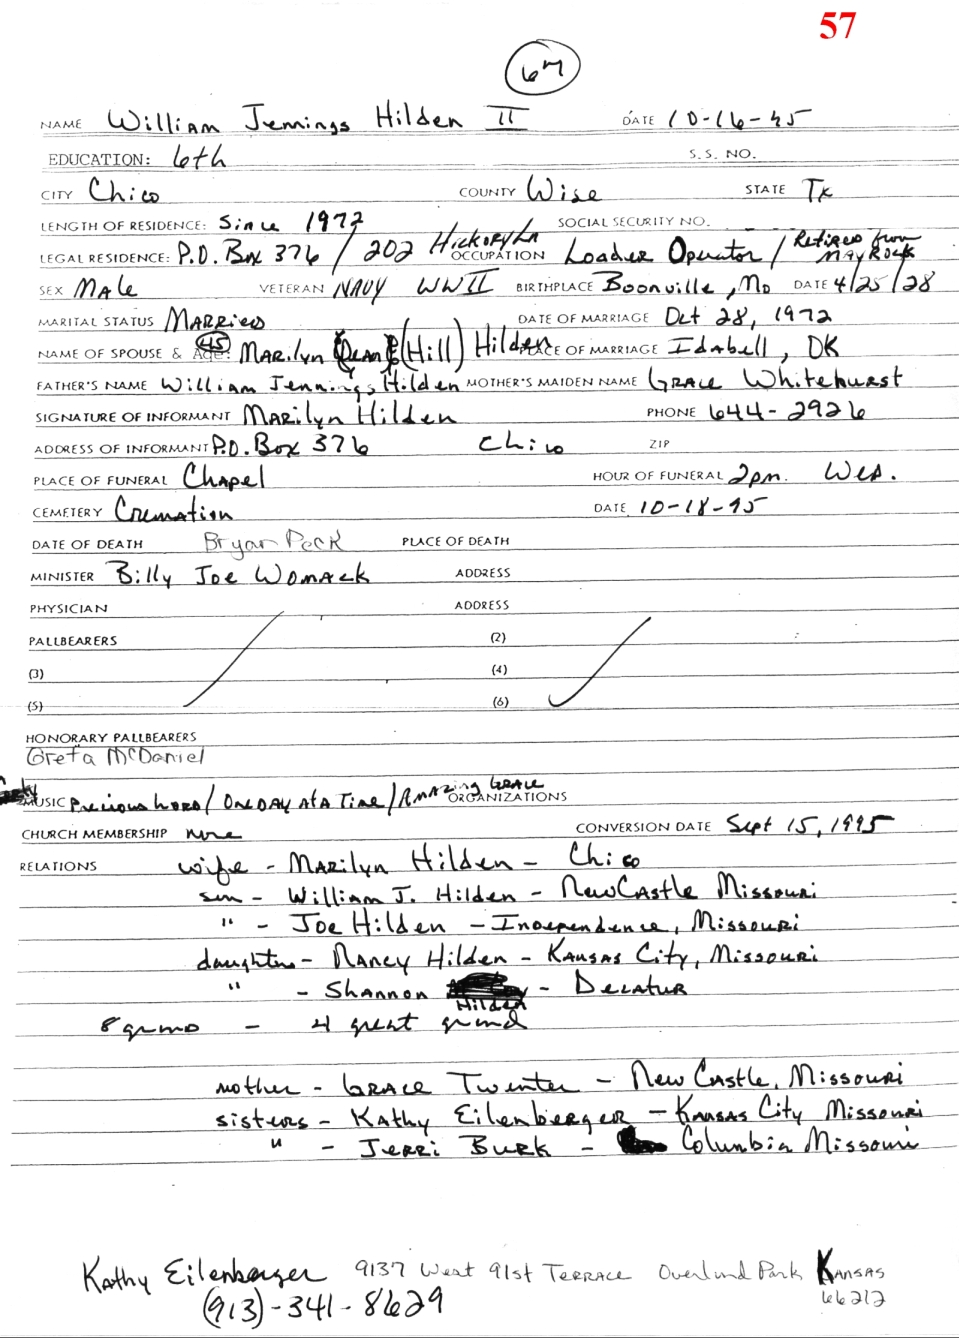 57
67
NAME William Jennings Hilden II DATE 10-16-95
EDUCATION: 6th S.S. NO.
CITY Chico COUNTY Wise STATE Tx
LENGTH OF RESIDENCE: Since 1972 SOCIAL SECURITY NO.
LEGAL RESIDENCE: P.O. Box 376 / 202 Hickory Ln OCCUPATION Loader Operator / Retired from May Rock
SEX Male VETERAN NAVY WWII BIRTHPLACE Boonville, Mo DATE 4/25/28
MARITAL STATUS Married DATE OF MARRIAGE Oct 28, 1972
NAME OF SPOUSE & Age: 45 Marilyn Jean (Hill) Hilden PLACE OF MARRIAGE Idabell, OK
FATHER'S NAME William Jennings Hilden MOTHER'S MAIDEN NAME Grace Whitehurst
SIGNATURE OF INFORMANT Marilyn Hilden PHONE 644-2926
ADDRESS OF INFORMANT P.O. Box 376 Chico ZIP
PLACE OF FUNERAL Chapel HOUR OF FUNERAL 2pm. Wed.
CEMETERY Cremation DATE 10-18-95
DATE OF DEATH Bryan Peck PLACE OF DEATH
MINISTER Billy Joe Womack ADDRESS
PHYSICIAN ADDRESS
PALLBEARERS (2)
(3) (4)
(5) (6)
HONORARY PALLBEARERS
Greta McDaniel
MUSIC Precious Lord / One Day At a Time / Amazing Grace ORGANIZATIONS
CHURCH MEMBERSHIP none CONVERSION DATE Sept 15, 1995
RELATIONS wife - Marilyn Hilden - Chico
son - William J. Hilden - New Castle Missouri
" - Joe Hilden - Independence, Missouri
daughters - Nancy Hilden - Kansas City, Missouri
" - Shannon Hilden - Decatur
8 grand - 4 great grand
mother - Grace Twenter - New Castle, Missouri
sisters - Kathy Eilenberger - Kansas City Missouri
" - Jerri Burk - Columbia Missouri
Kathy Eilenberger 9137 West 91st Terrace Overland Park Kansas
66212
(913)-341-8629